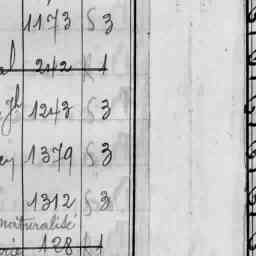 1173 S 3
al 242 K 1
gh 1243 S 3
1379 S 3
1312 S 3
naturalisé
128 K 1